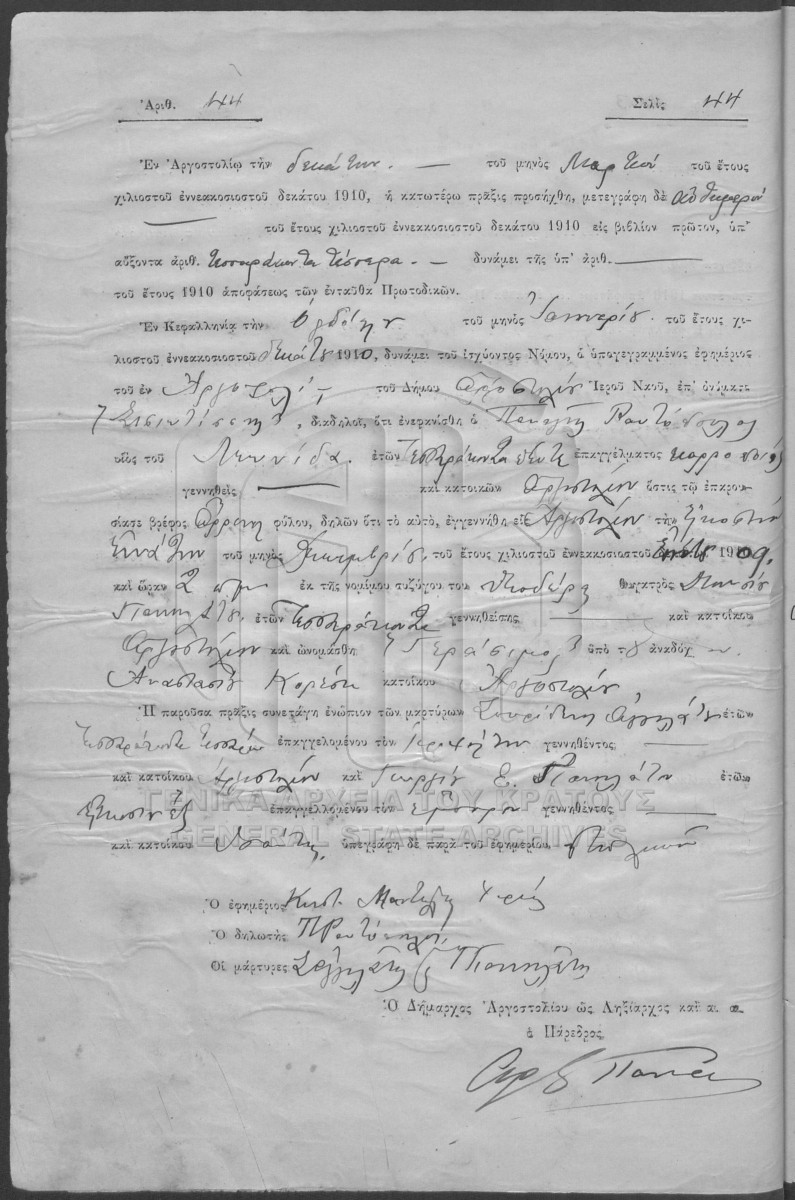 Ἀριθ. 44 Σελὶς 44
Ἐν Ἀργοστολίῳ τὴν δεκάτην. — τοῦ μηνὸς Μαρτίου τοῦ ἔτους
χιλιοστοῦ ἐννεακοσιοστοῦ δεκάτου 1910, ἡ κατωτέρω πρᾶξις προσήχθη, μετεγράφη δὲ αὐθημερὸν
τοῦ ἔτους χιλιοστοῦ ἐννεακοσιοστοῦ δεκάτου 1910 εἰς βιβλίον πρῶτον, ὑπ'
αὔξοντα ἀριθ. τεσσαράκοντα τέσσερα. — δυνάμει τῆς ὑπ' ἀριθ.
τοῦ ἔτους 1910 ἀποφάσεως τῶν ἐνταῦθα Πρωτοδικῶν.
Ἐν Κεφαλληνίᾳ τὴν ὀγδόην τοῦ μηνὸς Ἰαννουαρίου τοῦ ἔτους χι-
λιοστοῦ ἐννεακοσιοστοῦ δεκάτου 1910, δυνάμει τοῦ ἰσχύοντος Νόμου, ὁ ὑπογεγραμμένος ἐφημέριος
τοῦ ἐν Ἀργοστολίῳ τοῦ Δήμου Ἀργοστολίου Ἱεροῦ Ναοῦ, ἐπ' ὀνόματι
Σισιωτίσσης, διαδηλοῖ, ὅτι ἐνεφανίσθη ὁ Παναγῆς Ραυτόπουλος
υἱὸς τοῦ Λεωνίδα ἐτῶν τεσσαράκοντα πέντε ἐπαγγέλματος
γεννηθεὶς — καὶ κατοικῶν Ἀργοστόλιον ὅστις τῷ ἐπαρου-
σίασε βρέφος ἄρρεν φύλου, δηλῶν ὅτι τὸ αὐτὸ, ἐγεννήθη εἰς Ἀργοστόλιον τὴν εἰκοστὴν
ἐννάτην τοῦ μηνὸς Δεκεμβρίου, τοῦ ἔτους χιλιοστοῦ ἐννεακοσιοστοῦ ἐννάτου 1909.
καὶ ὥραν 2 ἐκ τῆς νομίμου συζύγου του Θεοδώρας θυγατρὸς
ἐτῶν τεσσαράκοντα γεννηθείσης — καὶ κατοίκου
Ἀργοστόλιον καὶ ὠνομάσθη Γεράσιμος ὑπὸ τοῦ ἀναδόχου
Ἀναστασίου κατοίκου Ἀργοστολίου,
Ἡ παροῦσα πρᾶξις συνετάγη ἐνώπιον τῶν μαρτύρων Σπυρίδων ἐτῶν
τεσσαράκοντα τεσσάρων ἐπαγγελομένου τὸν γεννηθέντος —
καὶ κατοίκου Ἀργοστολίου καὶ Γεωργίου Ε. ἐτῶν
εἴκοσιν ἓξ ἐπαγγελλομένου τὸν ἔμπορον γεννηθέντος —
καὶ κατοίκου ὑπεγράφη δὲ παρὰ τοῦ ἐφημερίου
ΓΕΝΙΚΑ ΑΡΧΕΙΑ ΤΟΥ ΚΡΑΤΟΥΣ
GENERAL STATE ARCHIVES
Ὁ ἐφημέριος Κωστ.
Ὁ δηλωτὴς ΠΡαυτόπουλος
Οἱ μάρτυρες
Ὁ Δήμαρχος Ἀργοστολίου ὡς Ληξίαρχος καὶ α. α.
ὁ Πάρεδρος